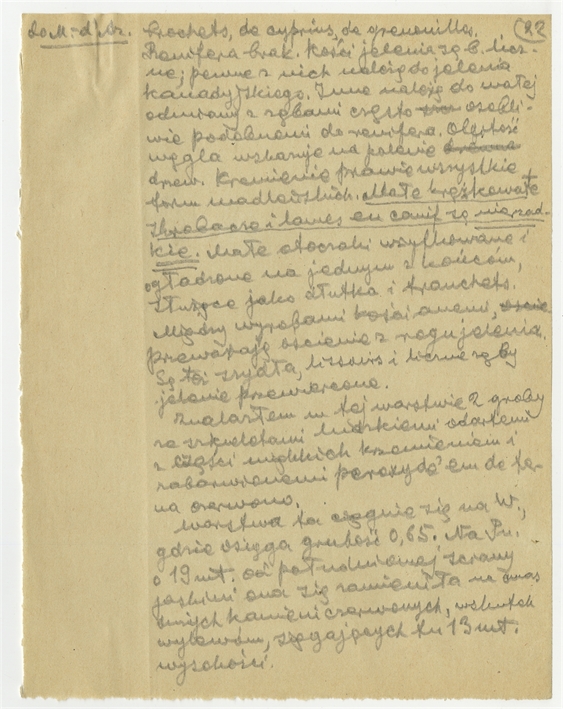 do M. d'Az. brochets, de cyprins, de grenouilles. 22
Renifera brak. Kości jelenia są b. licz-
ne; pewne z nich należą do jelenia
kanadyjskiego. Inne należą do małej
odmiany z zębami często osobli-
wie podobnemi do renifera. Obfitość
węgla wskazuje na palenie
drzew. Krzemienie prawie wszystkie
form madleńskich. Małe krążkowate
skrobacze i lames en canif są nierzad-
kie. Małe otoczaki
ogładzone na jednym z końców,
służące jako dłutka i tranchets.
Między wyrobami
przeważają ościenie z rogu jelenia.
Są też szydła, lissoirs i liczne zęby
jelenie przewiercone.
Znalazłem w tej warstwie 2 groby
ze szkieletami ludzkiemi odartemi
z części miękkich krzemieniem i
zabarwionemi peroxyde'em de fe-
na czerwono.
Warstwa ta ciągnie się na W.,
gdzie osiąga grubość 0,65. Na Pn.
o 19 mt. od południowej ściany
jaskini ona się zamieniła na
kamieni czerwonych, wskutek
wylewów, sięgających tu 13 mt.
wysokości.